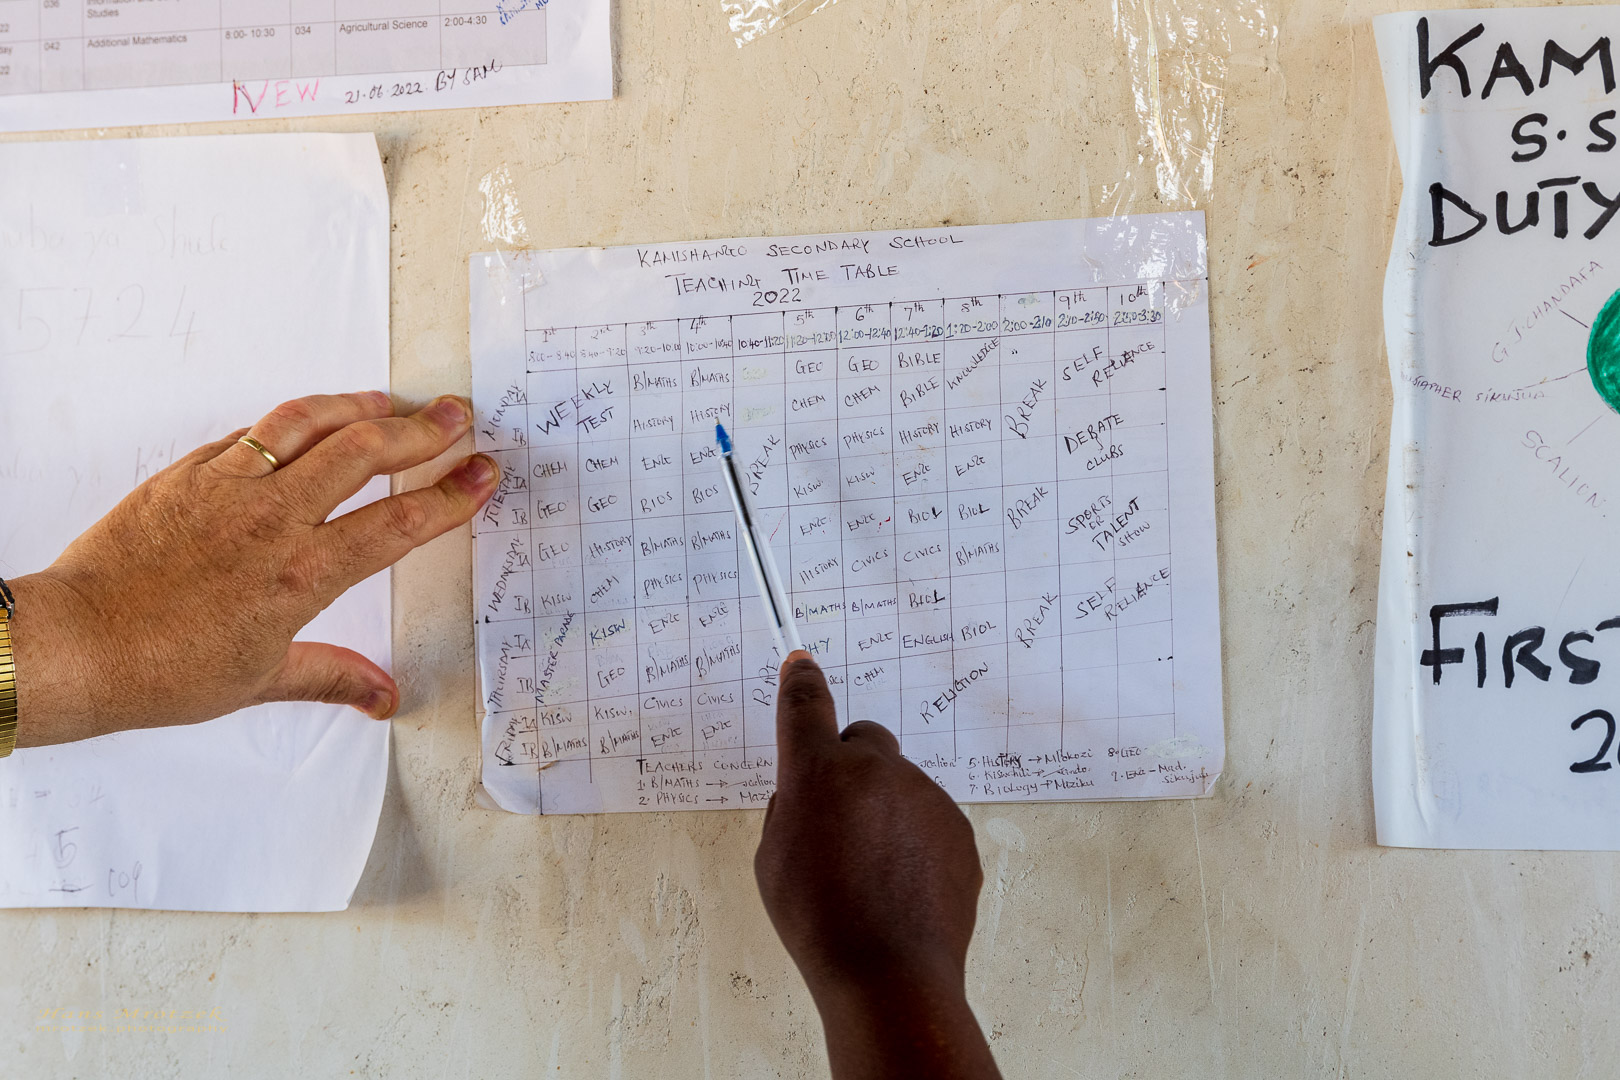 036
Studies
042 Additional Mathematics 8:00- 10:30 034 Agricultural Science 2:00-4.30
22
NEW 21.06.2022. BY SAM
5724
5
KAMISHANGO SECONDARY SCHOOL
TEACHING TIME TABLE
2022
1st 2nd 3th 4th 5th 6th 7th 8th 9th 10th
8:00-8:40 8:40-9:20 9:20-10:00 10:00-10:40 10:40-11:20 11:20-12:00 12:00-12:40 12:40-1:20 1:20-2:00 2:00-2:10 2:10-2:50 2:50-3:30
MONDAY IA WEEKLY TEST B/MATHS B/MATHS GEO GEO BIBLE KNOWLEDGE " SELF RELIANCE
IB HISTORY HISTORY CHEM CHEM BIBLE BREAK
TUESDAY IA CHEM CHEM ENG ENG BREAK PHYSICS PHYSICS HISTORY HISTORY DEBATE & CLUBS
IB GEO GEO BIOS BIOS KISW KISW ENG ENG
WEDNESDAY IA GEO HISTORY B/MATHS B/MATHS ENG ENG BIOL BIOL BREAK SPORTS OR TALENT SHOW
IB KISW CHEM PHYSICS PHYSICS HISTORY CIVICS CIVICS B/MATHS
THURSDAY IA MASTER PARADE KISW ENG ENG B/MATHS B/MATHS BIOL BREAK SELF RELIANCE
IB GEO B/MATHS B/MATHS PHY ENG ENGLISH BIOL
FRIDAY IA KISW KISW. CIVICS CIVICS CHEM RELIGION
IB B/MATHS B/MATHS ENG ENG
TEACHERS CONCERN
1. B/MATHS → 5. HISTORY → 8. GEO-
2. PHYSICS → 6. Kiswahili → 9. ENG - Mad.
7. Biology →
KAM
S.S
DUTY
G.J.CHANDAFA
SCALION
FIRST